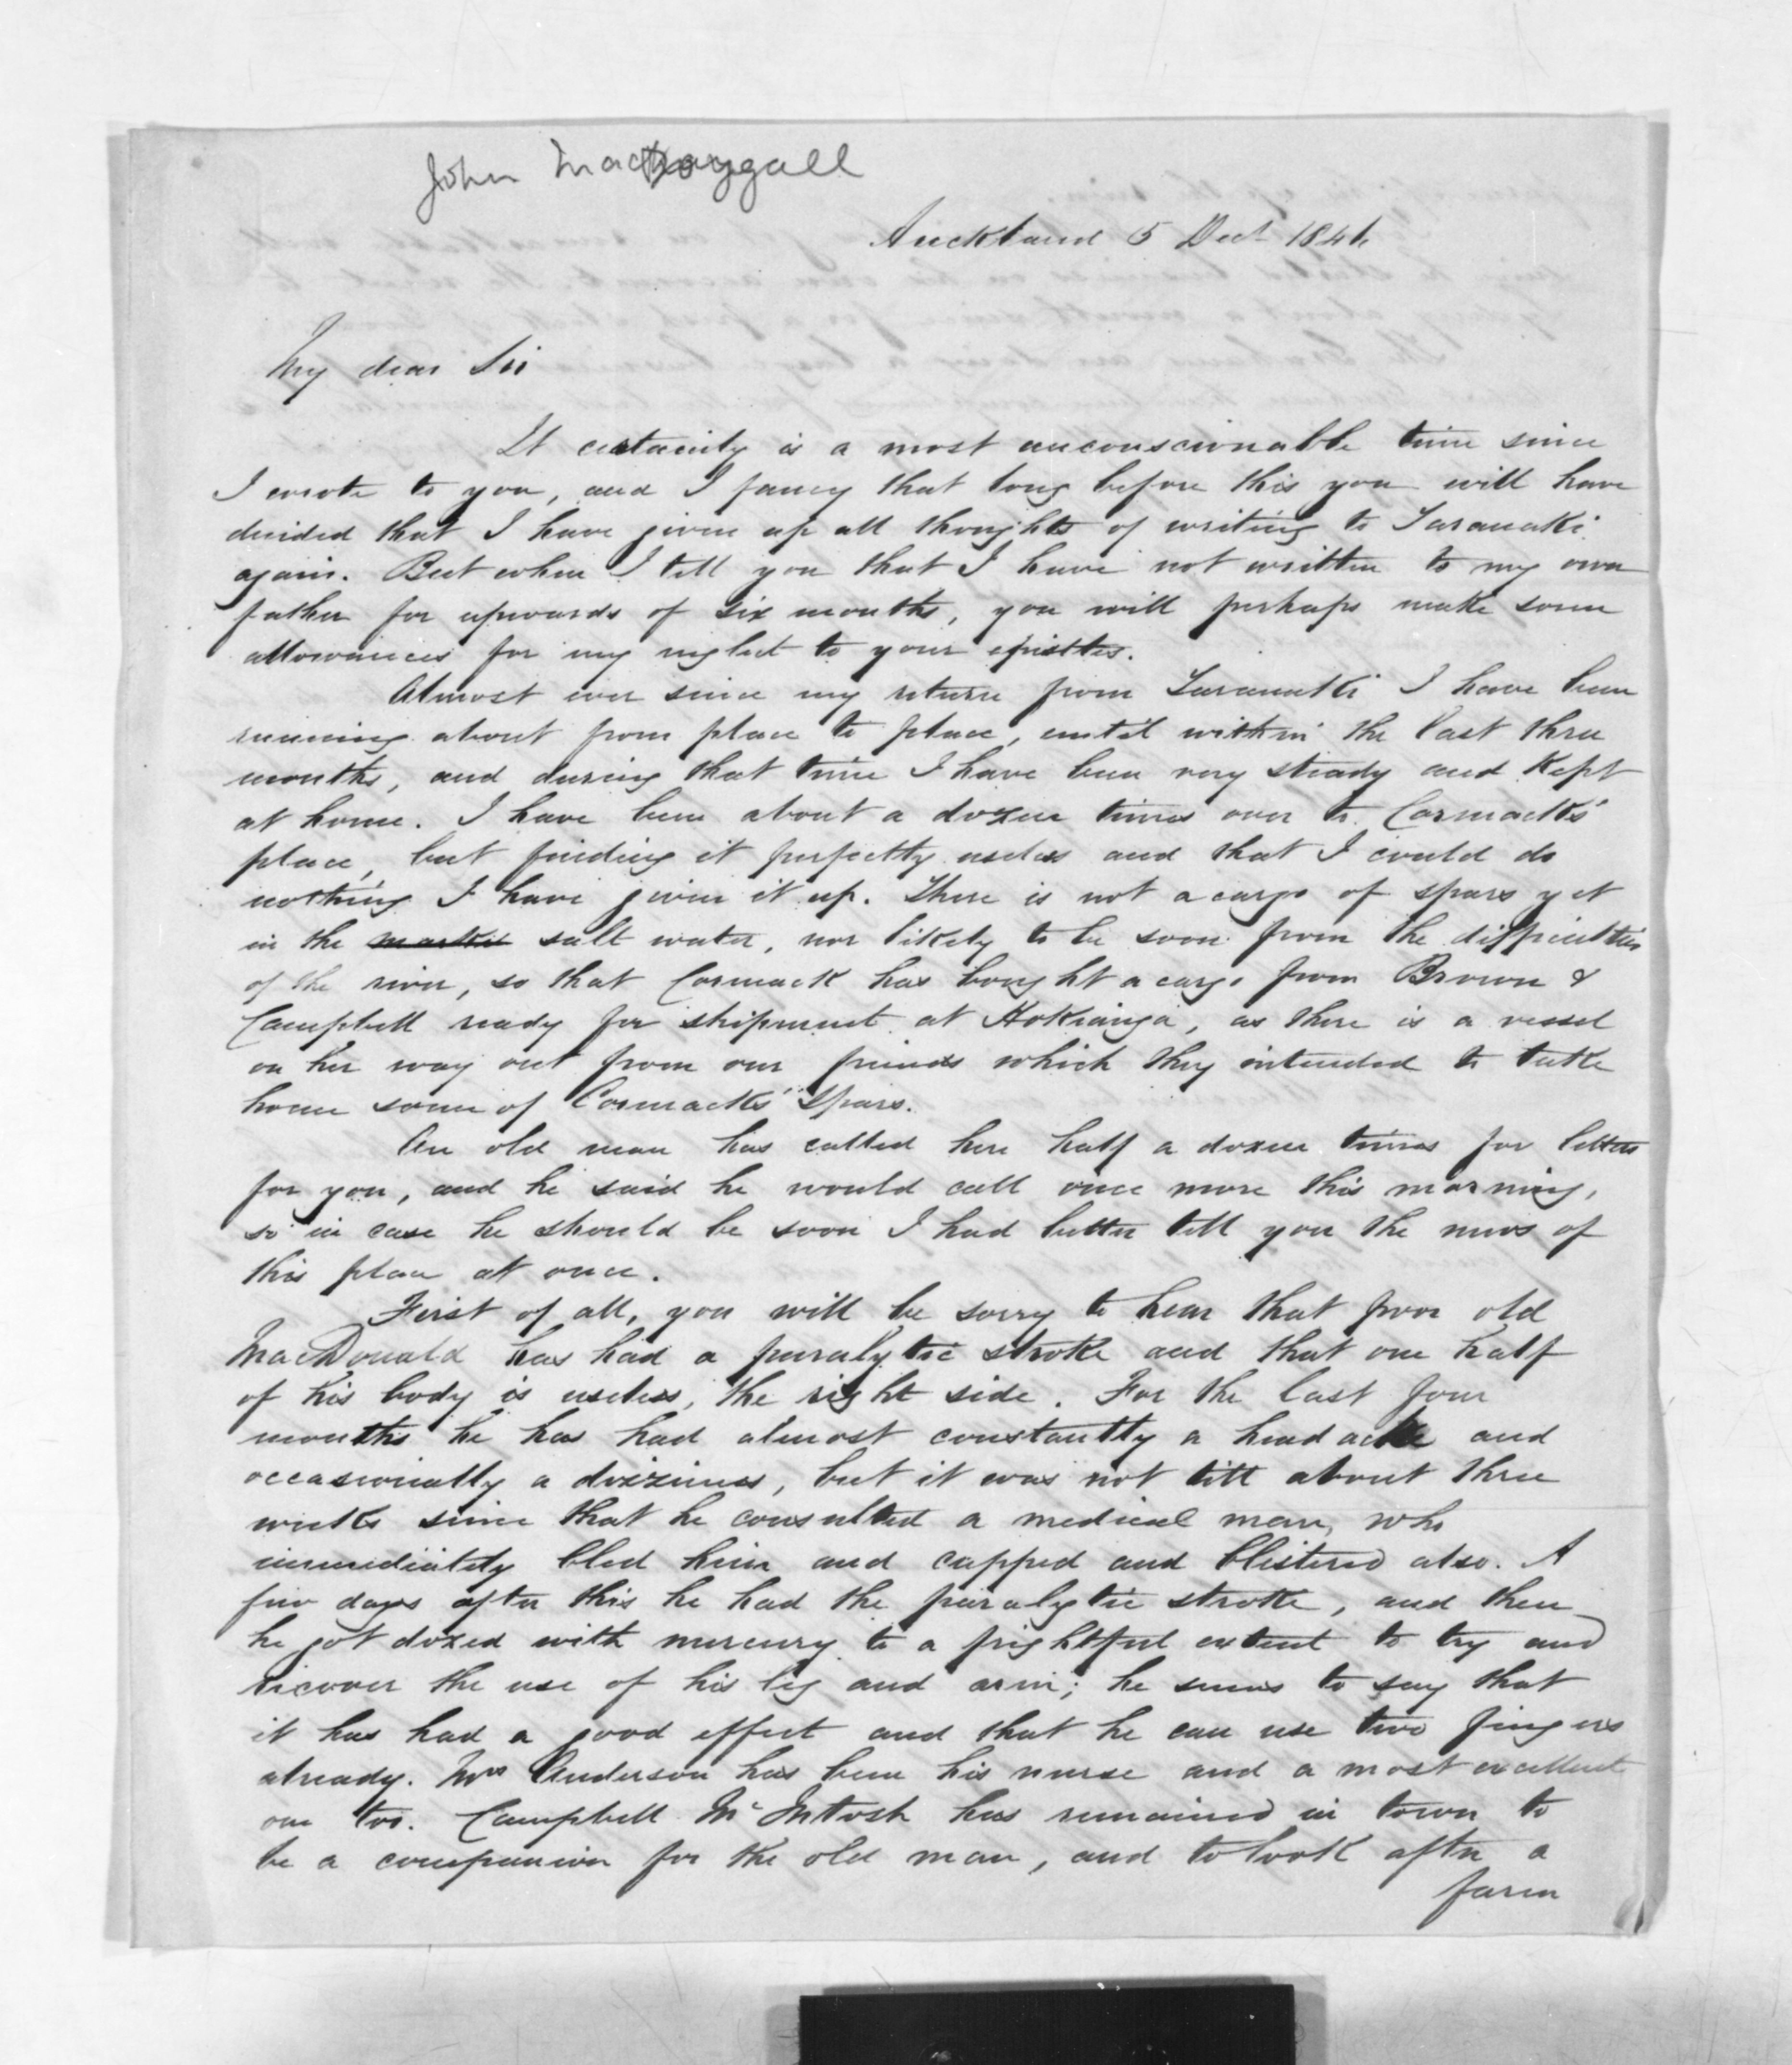 John MacDouggall
Auckland 5 Decr 1846
My dear Sir
It certainly is a most unconscionable time since
I wrote to you, and I fancy that long before this you will have
decided that I have given up all thoughts of writing to Taranaki
again. But when I tell you that I have not written to my own
father for upwards of six months, you will perhaps make some
allowances for my neglect to your epistles.
Almost ever since my return from Taranaki I have been
running about from place to place, until within the last three
months, and during that time I have been very steady and kept
at home. I have been about a dozen times over to Cormack's
place, but finding it perfectly useless and that I could do
nothing I have given it up. There is not a cargo of spars yet
in the market salt water, nor likely to be soon from the difficulties
of the river, so that Cormack has bought a cargo from Brown &
Campbell ready for shipment at Hokianga, as there is a vessel
on her way out from our friends which they intended to take
home some of Cormack's spars.
An old man has called here half a dozen times for letters
for you, and he said he would call once more this morning,
so in case he should be soon I had better tell you the news of
this place at once.
First of all, you will be sorry to hear that poor old
MacDonald has had a paralytic stroke and that one half
of his body is useless, the right side. For the last four
months he has had almost constantly a head ache and
occasionally a dizziness, but it was not till about three
weeks since that he consulted a medical man, who
immediately bled him and cupped and blistered also. A
few days after this he had the paralytic stroke, and then
he got dozed with mercury to a frightful extent to try and
recover the use of his leg and arm; he seems to say that
it has had a good effect and that he can use two fingers
already. Mrs Anderson has been his nurse and a most excellent
one too. Campbell McIntosh has remained in town to
be a companion for the old man, and to look after a
farm